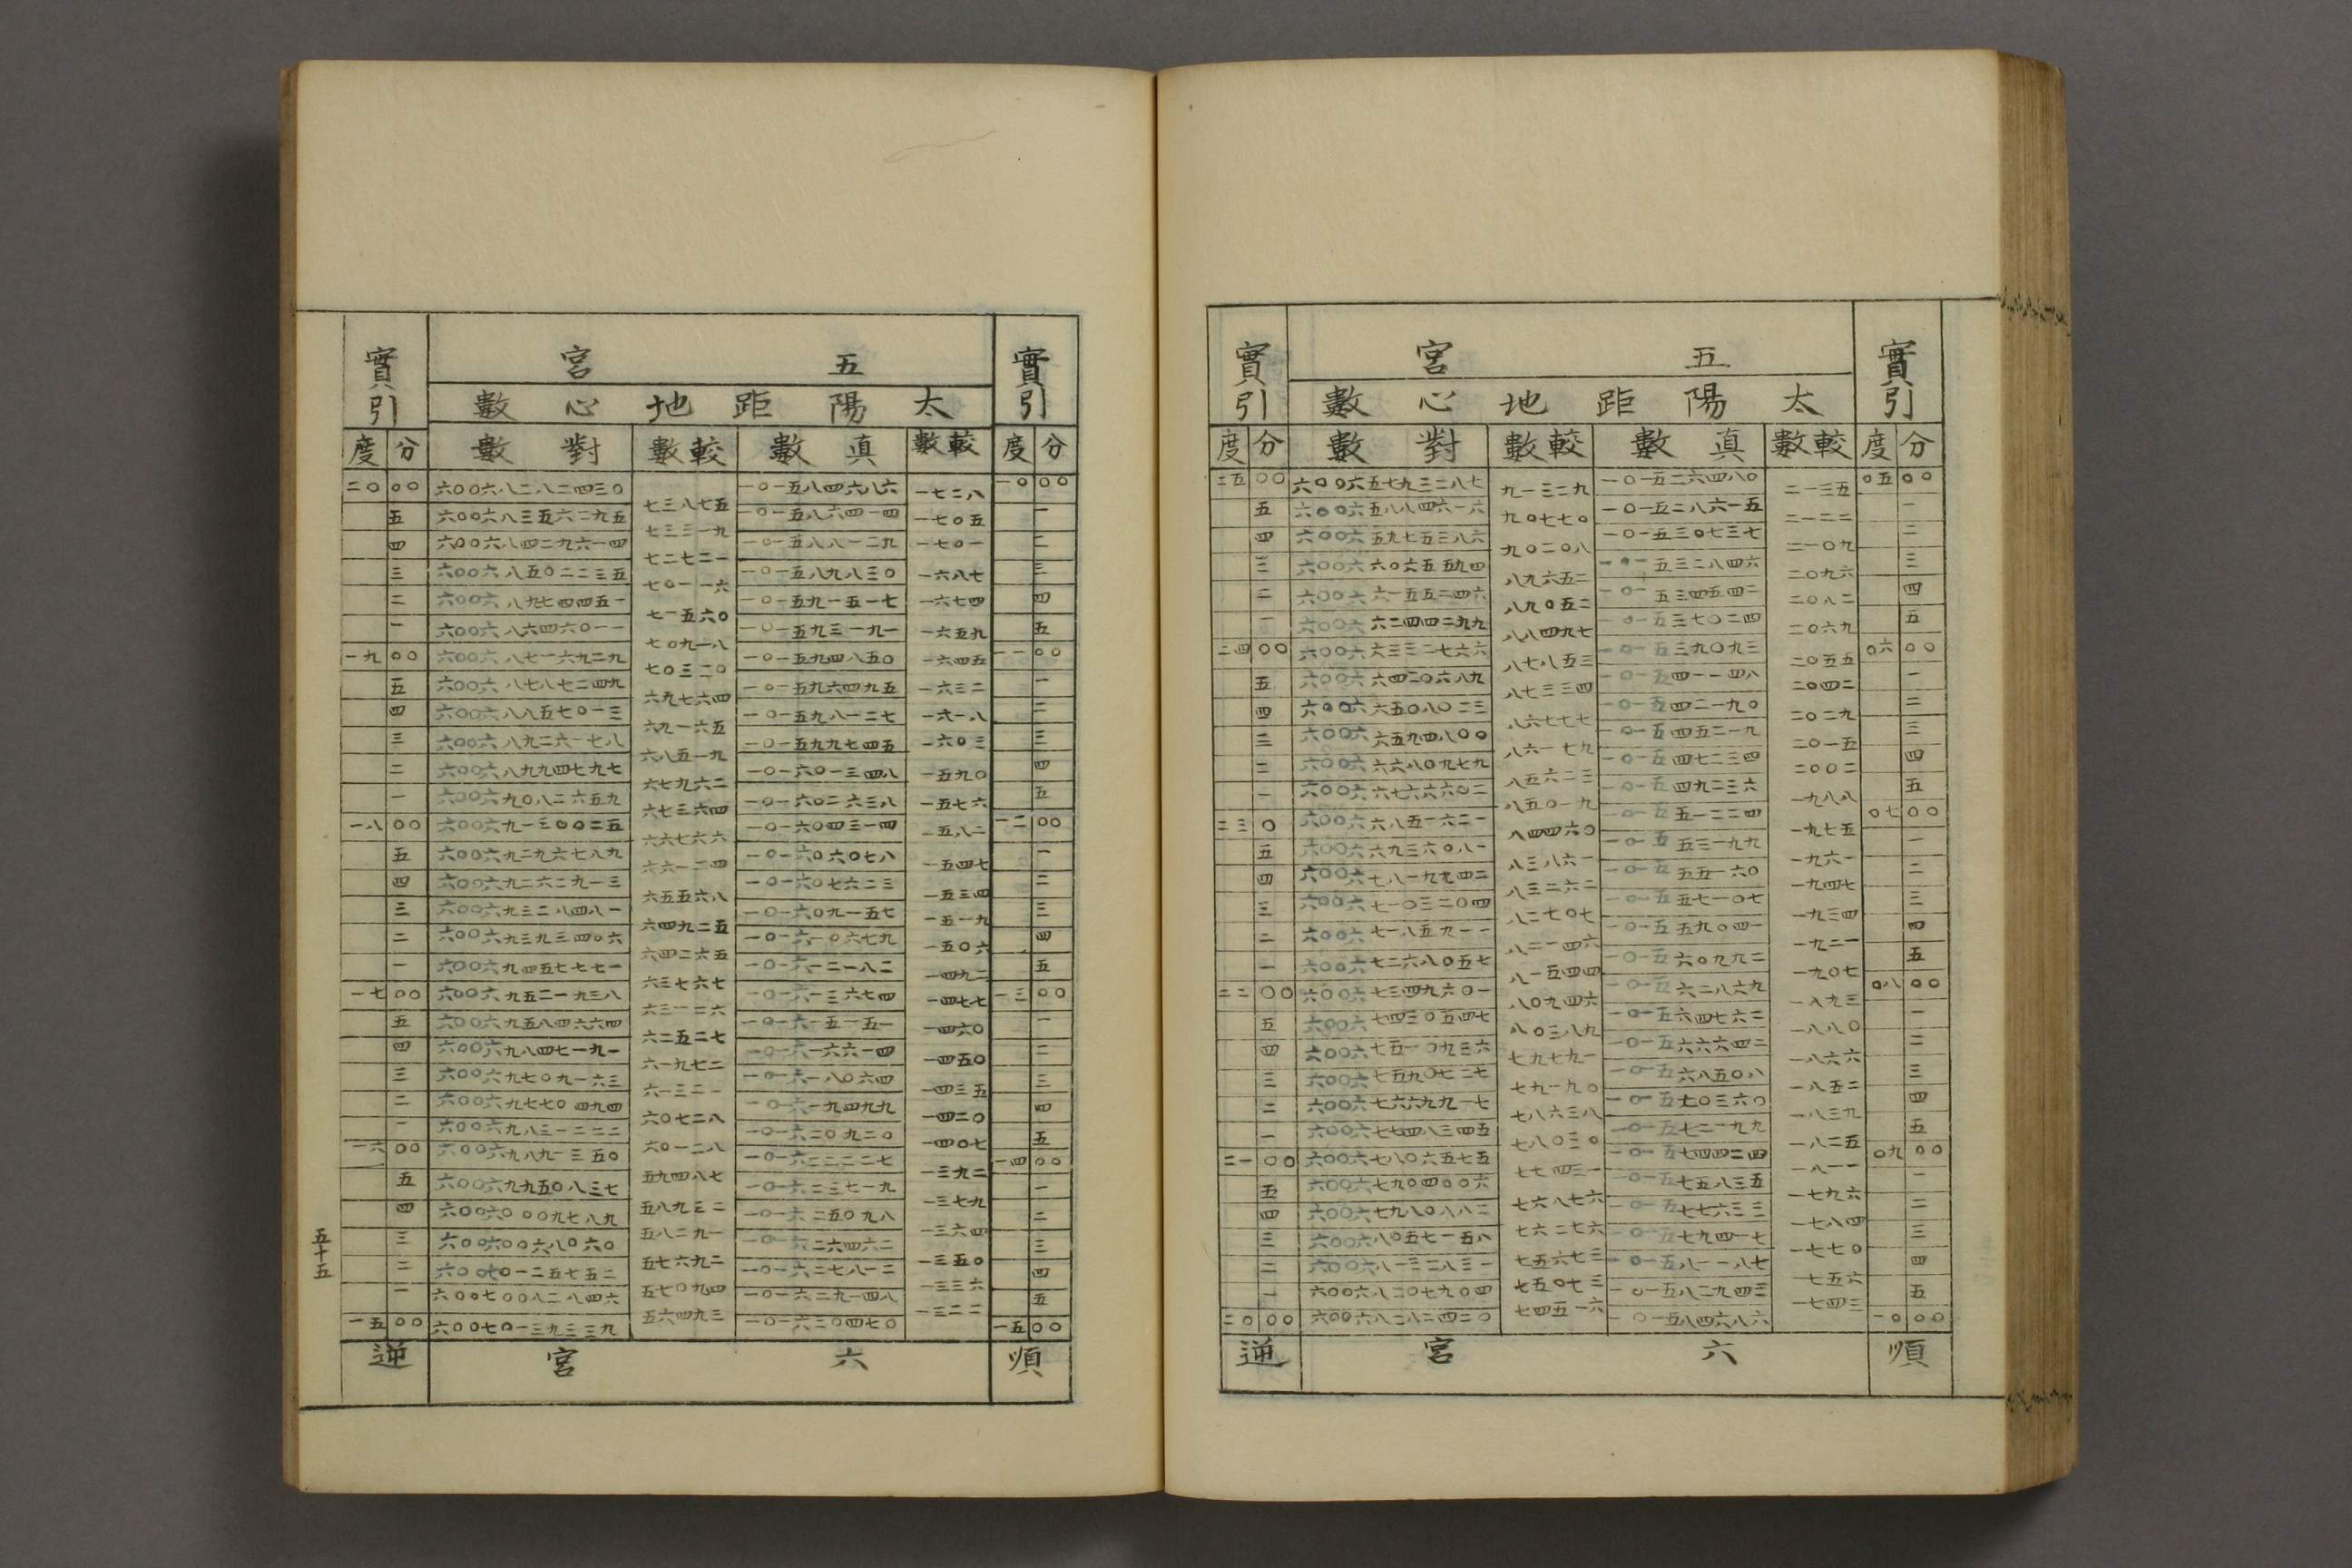 實引 五宮 實引
太陽距地心數
度 分 對數 較數 真數 較數 度 分
二五 〇〇 六〇〇六五七九三二八七 九一三二九 一〇一五二六四八〇 二一三五 〇五 〇〇
五 六〇〇六五八八四六一六 九〇七七〇 一〇一五二八六一五 二一二二 一
四 六〇〇六五九七五三八六 九〇二〇八 一〇一五三〇七三七 二一〇九 二
三 六〇〇六六〇六五五九四 八九六五二 一〇一五三二八四六 二〇九六 三
二 六〇〇六六一五五二四六 八九〇五二 一〇一五三四五四二 二〇八二 四
一 六〇〇六六二四四二九九 八八四九七 一〇一五三七〇二四 二〇六九 五
二四 〇〇 六〇〇六六三三二七六六 八七八五三 一〇一五三九〇九三 二〇五五 〇六 〇〇
五 六〇〇六六四二〇六八九 八七三三四 一〇一五四一一四八 二〇四二 一
四 六〇〇六六五〇八〇二三 八六七七七 一〇一五四二一九〇 二〇二九 二
三 六〇〇六六五九四八〇〇 八六一七九 一〇一五四五二一九 二〇一五 三
二 六〇〇六六六八〇九七九 八五六二三 一〇一五四七二三四 二〇〇二 四
一 六〇〇六六七六六六〇二 八五〇一九 一〇一五四九二三六 一九八八 五
二三 〇 六〇〇六六八五一六二一 八四四六〇 一〇一五五一二二四 一九七五 〇七 〇〇
五 六〇〇六六九三六〇八一 八三八六一 一〇一五五三一九九 一九六一 一
四 六〇〇六七八一九九四二 八三二六二 一〇一五五五一六〇 一九四七 二
三 六〇〇六七一〇三二〇四 八二七〇七 一〇一五五七一〇七 一九三四 三
二 六〇〇六七一八五九一一 八二一四六 一〇一五五九〇四一 一九二一 四
一 六〇〇六七二六八〇五七 八一五四四 一〇一五六〇九九二 一九〇七 五
二二 〇〇 六〇〇六七三四九六〇一 八〇九四六 一〇一五六二八六九 一八九三 〇八 〇〇
五 六〇〇六七四三〇五四七 八〇三八九 一〇一五六四七六二 一八八〇 一
四 六〇〇六七五一〇九三六 七九七九一 一〇一五六六六四二 一八六六 二
三 六〇〇六七五九〇七二七 七九一九〇 一〇一五六八五〇八 一八五二 三
二 六〇〇六七六六九九一七 七八六三八 一〇一五七〇三六〇 一八三九 四
一 六〇〇六七七四八三四五 七八〇三〇 一〇一五七二一九九 一八二五 五
二一 〇〇 六〇〇六七八〇六五七五 七七四三一 一〇一五七四四二四 一八一一 〇九 〇〇
五 六〇〇六七九〇四〇〇六 七六八七六 一〇一五七五八三五 一七九六 一
四 六〇〇六七九八〇八八二 七六二七六 一〇一五七七六三三 一七八四 二
三 六〇〇六八〇五七一五八 七五六七三 一〇一五七九四一七 一七七〇 三
二 六〇〇六八一三二八三一 七五〇七三 一〇一五八一一八七 一七五六 四
一 六〇〇六八二〇七九〇四 七四五一六 一〇一五八二九四三 一七四三 五
二〇 〇〇 六〇〇六八二八二四二〇 一〇一五八四六八六 一〇 〇〇
逆 六宮 順
實引 五宮 實引
太陽距地心數
度 分 對數 較數 真數 較數 度 分
二〇 〇〇 六〇〇六八二八二四三〇 七三八七五 一〇一五八四六八六 一七二八 一〇 〇〇
五 六〇〇六八三五六二九五 七三三一九 一〇一五八六四一四 一七〇五 一
四 六〇〇六八四二九六一四 七二七二一 一〇一五八八一二九 一七〇一 二
三 六〇〇六八五〇二二三五 七〇一一六 一〇一五八九八三〇 一六八七 三
二 六〇〇六八九七四四五一 七一五六〇 一〇一五九一五一七 一六七四 四
一 六〇〇六八六四六〇一一 七〇九一八 一〇一五九三一九一 一六五九 五
一九 〇〇 六〇〇六八七一六九二九 七〇三二〇 一〇一五九四八五〇 一六四五 一一 〇〇
五 六〇〇六八七八七二四九 六九七六四 一〇一五九六四九五 一六三二 一
四 六〇〇六八八五七〇一三 六九一六五 一〇一五九八一二七 一六一八 二
三 六〇〇六八九二六一七八 六八五一九 一〇一五九九七四五 一六〇三 三
二 六〇〇六八九九四七九七 六七九六二 一〇一六〇一三四八 一五九〇 四
一 六〇〇六九〇八二六五九 六七三六四 一〇一六〇二六三八 一五七六 五
一八 〇〇 六〇〇六九一三〇〇二五 六六七六六 一〇一六〇四三一四 一五八二 一二 〇〇
五 六〇〇六九二九六七八九 六六一二四 一〇一六〇六〇七八 一五四七 一
四 六〇〇六九二六二九一三 六五五六八 一〇一六〇七六二三 一五三四 二
三 六〇〇六九三二八四八一 六四九二五 一〇一六〇九一五七 一五一九 三
二 六〇〇六九三九三四〇六 六四二六五 一〇一六一〇六七九 一五〇六 四
一 六〇〇六九四五七七七一 六三七六七 一〇一六一二一八二 一四九二 五
一七 〇〇 六〇〇六九五二一九三八 六三一二六 一〇一六一三六七四 一四七七 一三 〇〇
五 六〇〇六九五八四六六四 六二五二七 一〇一六一五一五一 一四六〇 一
四 六〇〇六九八四七一九一 六一九七二 一〇一六一六六一四 一四五〇 二
三 六〇〇六九七〇九一六三 六一三二一 一〇一六一八〇六四 一四三五 三
二 六〇〇六九七七〇四九四 六〇七二八 一〇一六一九四九九 一四二〇 四
一 六〇〇六九八三一二二二 六〇一二八 一〇一六二〇九二〇 一四〇七 五
一六 〇〇 六〇〇六九八九一三五〇 五九四八七 一〇一六二二二二七 一三九二 一四 〇〇
五 六〇〇六九九五〇八三七 五八九三二 一〇一六二三七一九 一三七九 一
四 六〇〇六〇〇〇九七八九 五八二九一 一〇一六二五〇九八 一三六四 二
三 六〇〇六〇〇六八〇六〇 五七六九二 一〇一六二六四六二 一三五〇 三
二 六〇〇七〇一二五七五二 五七〇九四 一〇一六二七八一二 一三三六 四
一 六〇〇七〇〇八二八四六 五六四九三 一〇一六二九一四八 一三二二 五
一五 〇〇 六〇〇七〇一三九三三九 一〇一六三〇四七〇 一五 〇〇
逆 六宮 順
五十五